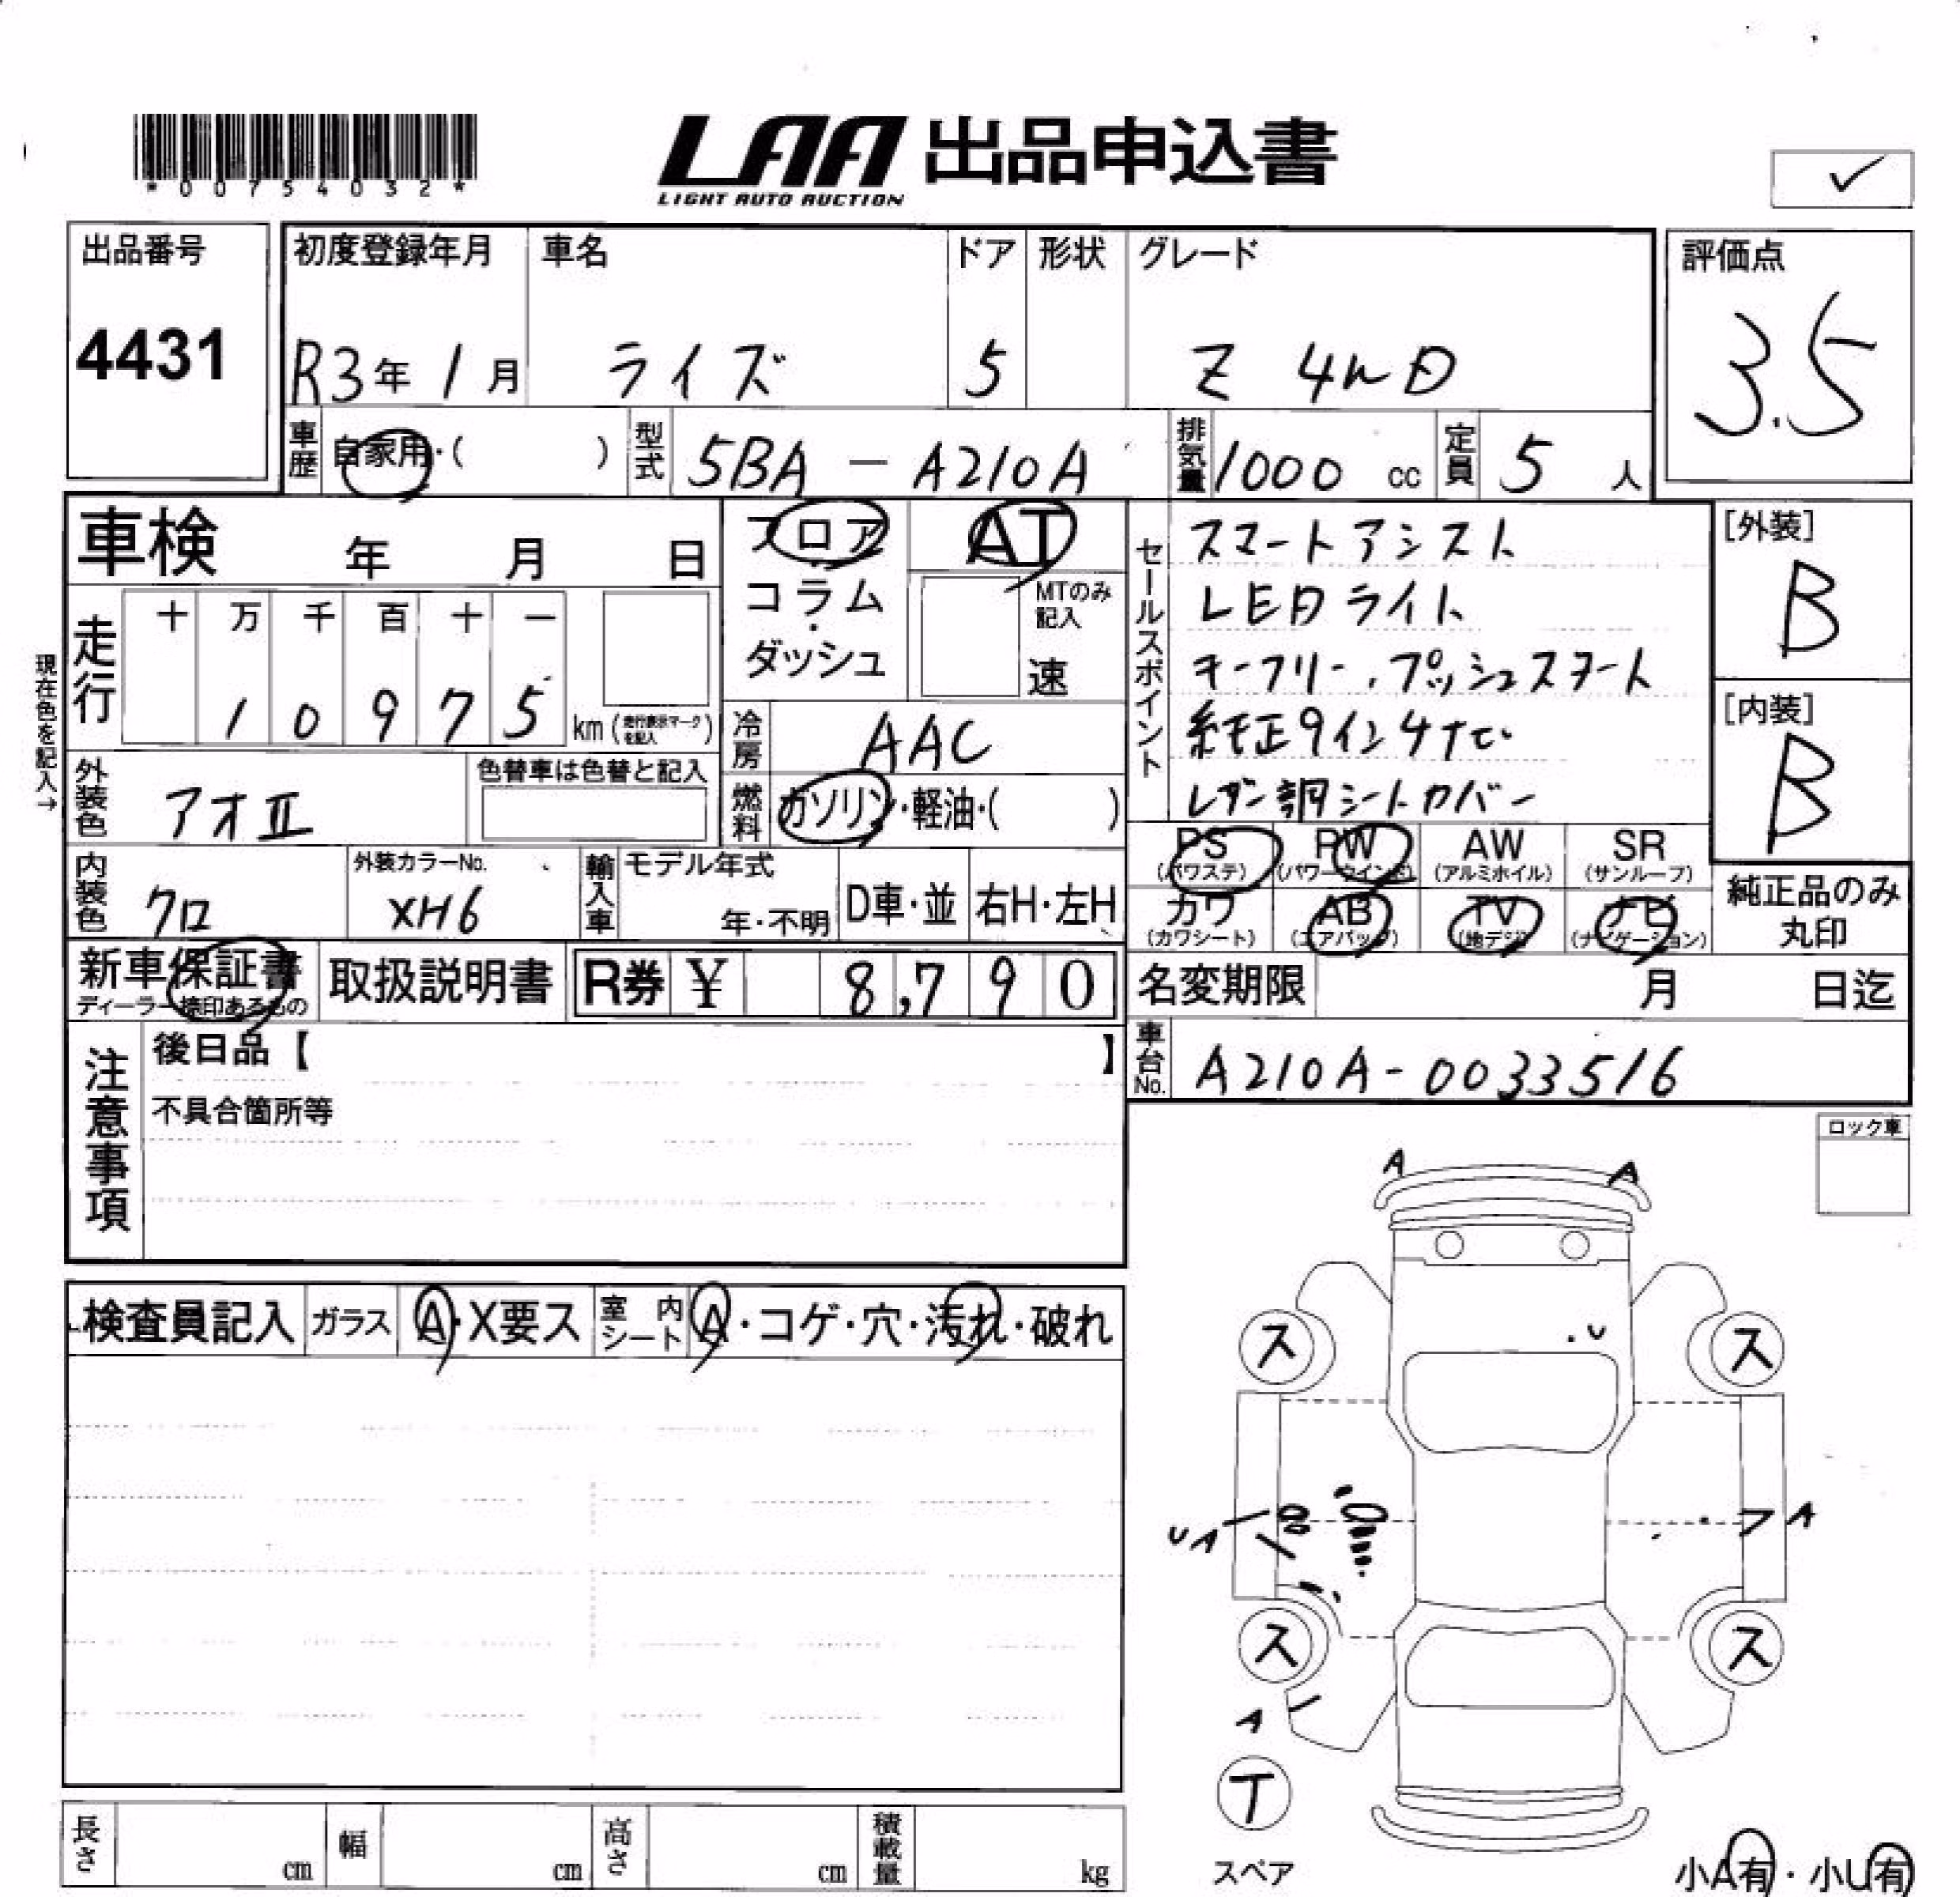 *00754032*
LAA 出品申込書
LIGHT AUTO AUCTION
✓
出品番号
4431
初度登録年月
R3年 1月
車名
ライズ
ドア
5
形状
グレード
Z 4WD
評価点
3.5
車歴
自家用・( )
型式
5BA - A210A
排気量
1000 cc
定員
5 人
車検 年 月 日
フロア
コラム
ダッシュ
AT
MTのみ記入
速
セールスポイント
スマートアシスト
LEDライト
キーフリー・プッシュスタート
純正9インチナビ
レザー調シートカバー
[外装]
B
[内装]
B
現在色を記入→
走行
十 万 千 百 十 一
1 0 9 7 5
km (走行表示マークを記入)
冷房
AAC
外装色
アオⅡ
色替車は色替と記入
燃料
ガソリン・軽油・( )
内装色
クロ
外装カラーNo.
XH6
輸入車
モデル年式
年・不明
D車・並
右H・左H
PS
(パワステ)
PW
(パワーウインド)
AW
(アルミホイル)
SR
(サンルーフ)
カワ
(カワシート)
AB
(エアバッグ)
TV
(地デジ)
ナビ
(ナビゲーション)
純正品のみ
丸印
新車保証書
ディーラー捺印あるもの
取扱説明書
R券 ¥ 8,790
名変期限 月 日迄
注意事項
後日品【 】
不具合箇所等
車台No.
A210A-0033516
ロック車
検査員記入
ガラス
A・X要ス
室内シート
A・コゲ・穴・汚れ・破れ
A
A
U
ス
ス
UA
A
ス
ス
A
T
スペア
小A有・小U有
長さ cm
幅 cm
高さ cm
積載量 kg